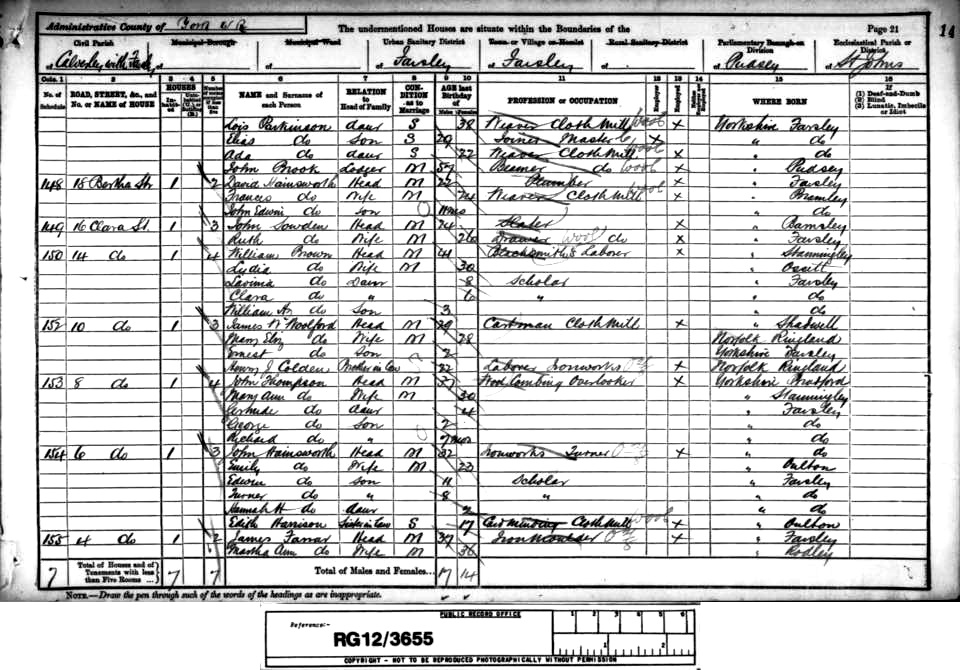 Administrative County of York W R
The undermentioned Houses are situate within the Boundaries of the
Page 21
14
Civil Parish
Municipal Borough
Municipal Ward
Urban Sanitary District
Town or Village or Hamlet
Rural Sanitary District
Parliamentary Borough or Division
Ecclesiastical Parish or District
of Calverley with Farsley
of
of
of Farsley
of Farsley
of
of Pudsey
of St Johns
Cols. 1 2 3 4 5 6 7 8 9 10 11 12 13 14 15 16
No. of Schedule
ROAD, STREET, &c., and No. or NAME of HOUSE
HOUSES
NAME and Surname of each Person
RELATION to Head of Family
CONDITION as to Marriage
AGE last Birthday of
PROFESSION or OCCUPATION
Employer
Employed
WHERE BORN
If (1) Deaf-and-Dumb (2) Blind (3) Lunatic, Imbecile or Idiot
Lois Parkinson daur S 38 Weaver Cloth Mill Wool x Yorkshire Farsley
Elias do son S 29 Joiner Master x " do
Ada do daur S 22 Weaver Cloth Mill Wool x " do
John Brook Lodger M 57 Beamer do Wool x " Pudsey
148 18 Bertha St 1 2 David Hainsworth Head M 22 Plumber x " Farsley
Frances do Wife M 24 Weaver Cloth Mill Wool x " Bramley
John Edwin do son 11 mos " do
149 16 Clara St. 1 3 John Sowden Head M 24 Slater x " Barnsley
Ruth do Wife M 26 Drawer Wool do x " Farsley
150 14 do 1 4 William Brown Head M 41 Blacksmith's Laborer x " Stanningley
Lydia do Wife M 30 " Ossett
Lavinia do Daur 8 Scholar " Farsley
Clara do " 6 " " do
William H. do Son 3 " do
152 10 do 1 3 James W Woolford Head M 29 Cloth Mill x " Shadwell
Mary Eliz do Wife M 28 Norfolk Ringland
Ernest do Son 2 Yorkshire Farsley
Henry J Colden Brother in law 22 Laborer Ironworks x Norfolk Ringland
153 8 do 1 4 John Thompson Head M 37 Wool Combing Overlooker x Yorkshire Bradford
Mary Ann do Wife M 30 " Stanningley
Gertrude do daur 4 " Farsley
George do Son 2 " do
Richard do " 7 mos " do
154 6 do 1 3 John Hainsworth Head M 32 Ironworks Turner x " do
Emily do Wife M 23 " Oulton
Edwin do son 11 Scholar " Farsley
Turner do " 8 " " do
Hannah H do daur 2 " do
Edith Harrison Sister in law S 17 Card minding Cloth Mill Wool x " Oulton
155 4 do 1 2 James Farrar Head M 37 Iron Moulder x " Farsley
Martha Ann do Wife M 36 " Rodley
7 Total of Houses and of Tenements with less than Five Rooms ... 7 7 Total of Males and Females... 17 14
NOTE.—Draw the pen through such of the words of the headings as are inappropriate.
PUBLIC RECORD OFFICE
Reference:-
RG12/3655
1 2 3 4 5 6
1 2
COPYRIGHT - NOT TO BE REPRODUCED PHOTOGRAPHICALLY WITHOUT PERMISSION